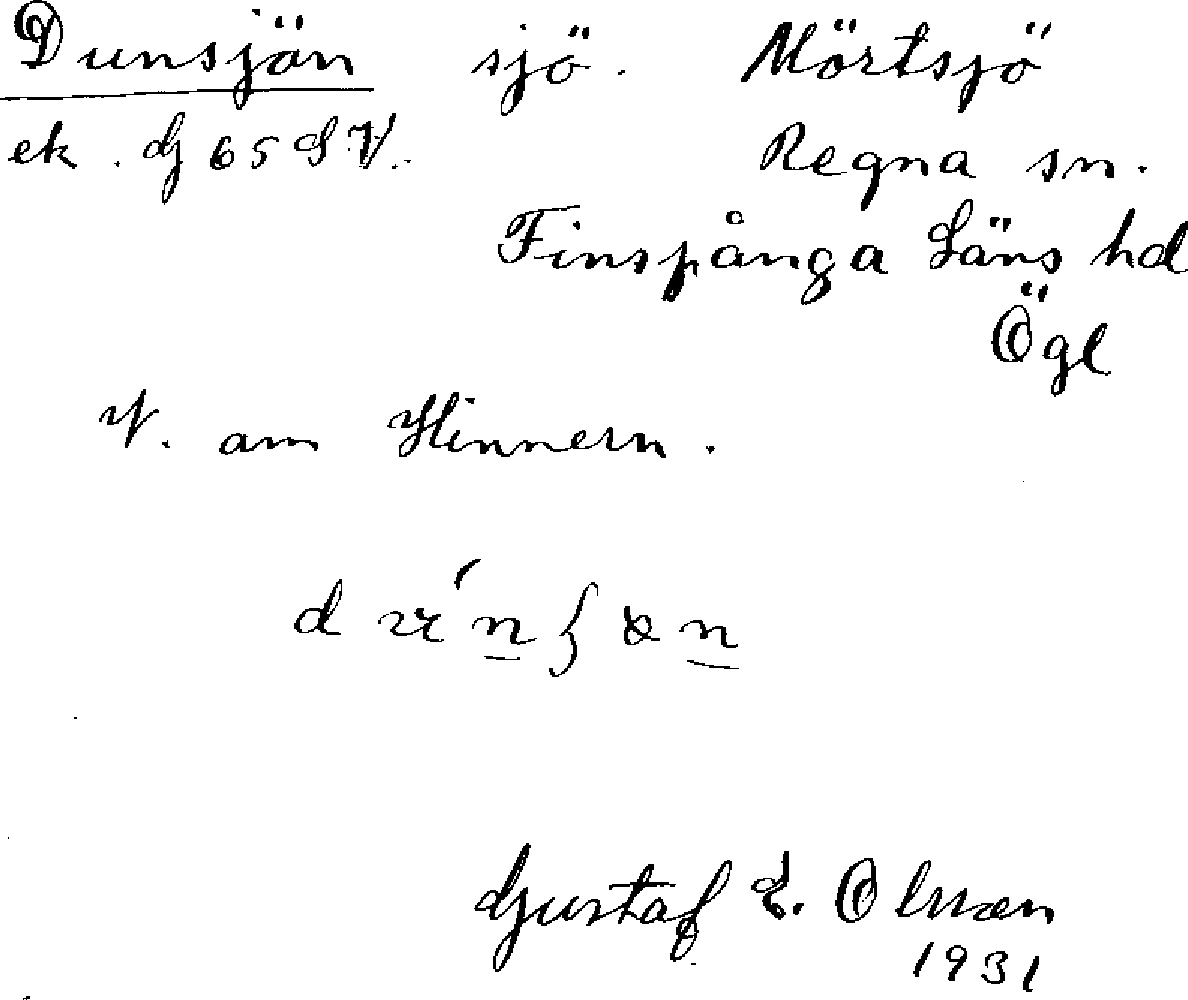 Dunsjön sjö. Mörtsjö
ek. dj 65 SV. Regna sn.
Finspånga Läns hd
Ögl
V. om Hinnern.
Gustaf E. Olsson
1931